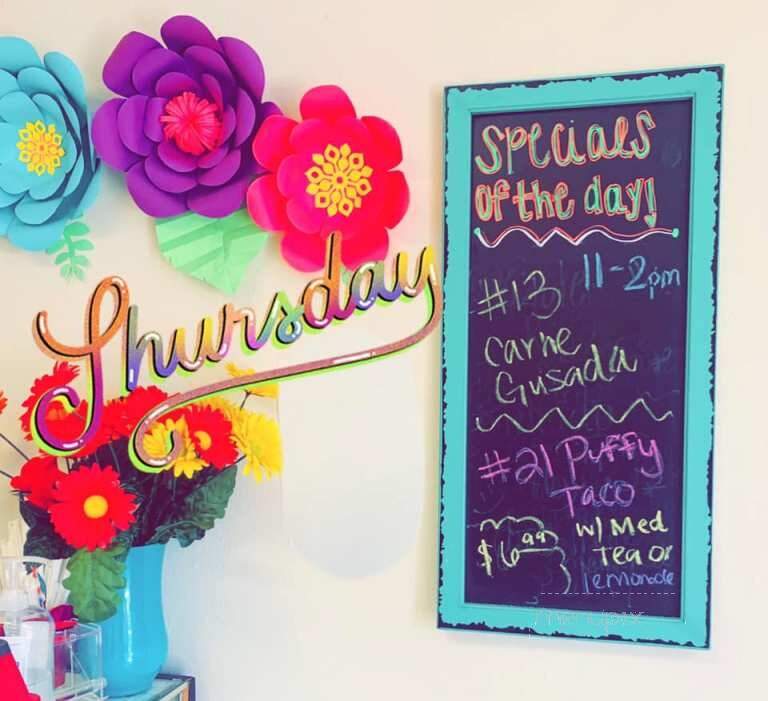 Thursday
Specials
of the day!
11-2pm
#13
Carne
Gusada
#21 Puffy
Taco
$6.99 w/ Med
Tea or
lemonade
menupix